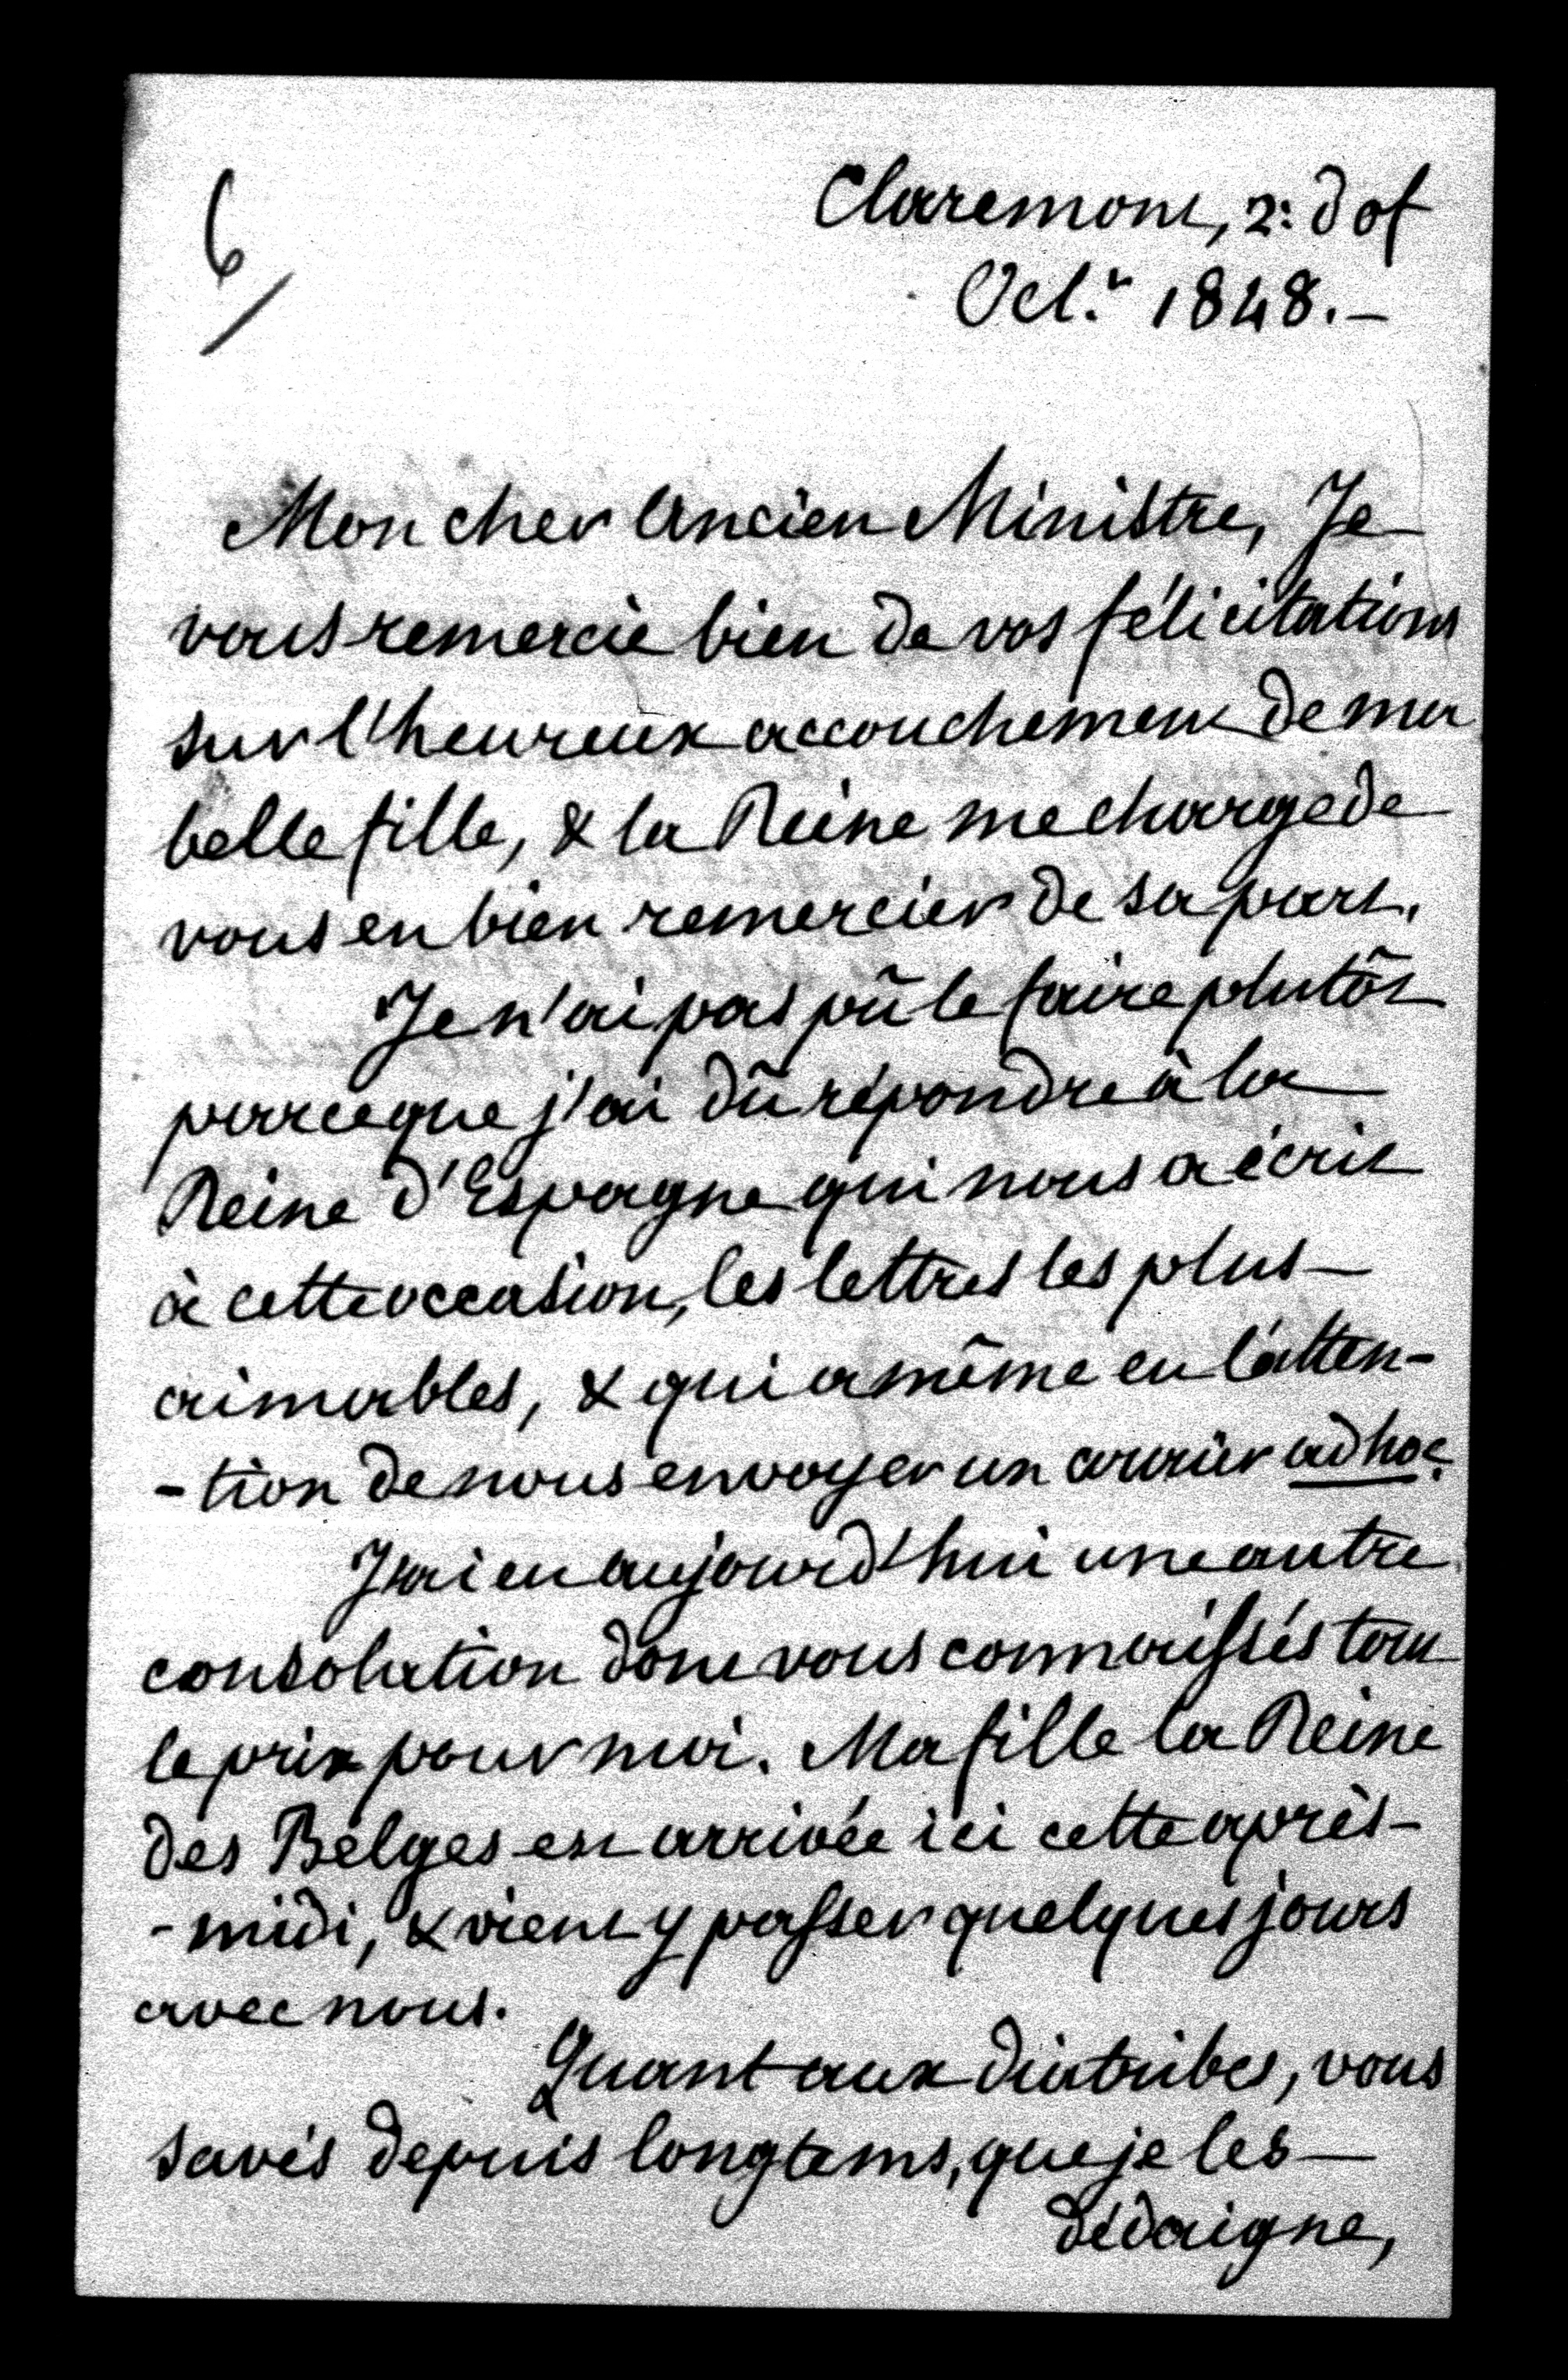 6
Claremont, 2: d of
Oct.r 1848. –
Mon cher Ancien Ministre, Je
vous remercie bien de vos félicitations
sur l'heureux accouchement de ma
belle fille, & la Reine me charge de
vous en bien remercier de sa part.
Je n'ai pas pû le faire plutôt
parceque j'ai dû répondre à la
Reine d'Espagne qui nous a écrit
à cette occasion, les lettres les plus
aimables, & qui a même eu l'atten-
-tion de nous envoyer un courier ad hoc.
J'ai eu aujourd'hui une autre
consolation dont vous connaissés tout
le prix pour moi. Ma fille la Reine
des Belges est arrivée ici cette après-
-midi, & vient y passer quelques jours
avec nous.
Quant aux diatribes, vous
savés depuis longtems, que je les
dédaigne,